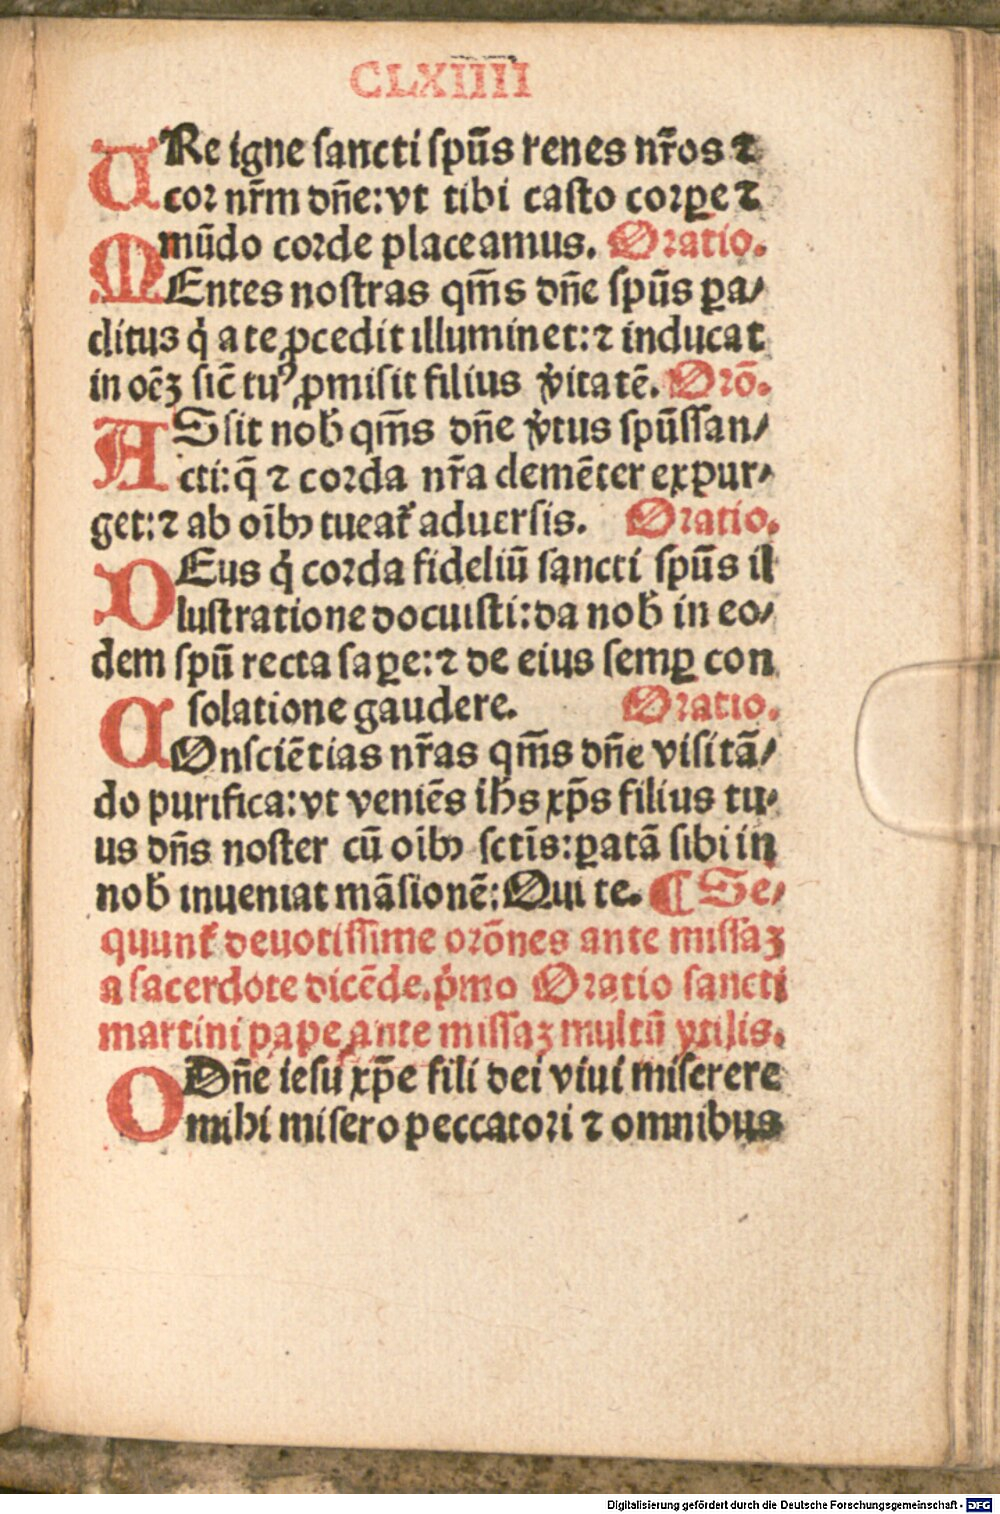 CLXIIII
URe igne sancti spūs renes nr̄os ⁊
cor nr̄m dn̄e: vt tibi casto corꝑe ⁊
mūdo corde placeamus. Oratio.
MEntes nostras qm̄s dn̄e spūs ꝑa/
clitus q̇ a te ꝓcedit illuminet: ⁊ inducat
in oēȝ sic̄ tuꝰ ꝓmisit filius v̓itatē. Orō.
ASsit nob̄ qm̄s dn̄e v̓tus spūssan/
cti: q̄ ⁊ corda nr̄a clemēter expur/
get: ⁊ ab oībꝰ tueat᷑ aduersis. Oratio.
DEus q̇ corda fideliū sancti spūs il
lustratione docuisti: da nob̄ in eo/
dem spū recta saꝑe: ⁊ de eius semꝑ con
solatione gaudere. Oratio.
COnsciētias nr̄as qm̄s dn̄e visitā/
do purifica: vt veniēs ih̄s xp̄s filius tu/
us dn̄s noster cū oībꝰ sctīs: ꝑatā sibi in
nob̄ inueniat māsionē: Qui te. ¶ Se/
quunt᷑ deuotissime orōnes ante missaȝ
a sacerdote dicēde. p̓mo Oratio sancti
martini pape ante missaȝ multū vtilis.
ODn̄e iesu xp̄e fili dei viui miserere
mihi misero peccatori ⁊ omnibus
Digitalisierung gefördert durch die Deutsche Forschungsgemeinschaft - DFG